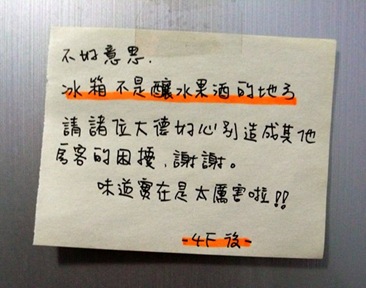 不好意思.
冰箱不是釀水果酒的地方
請諸位大德好心別造成其他
房客的困擾,謝謝。
味道實在是太厲害啦!!
-4F 後-